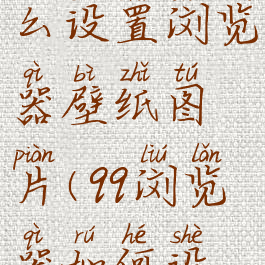 么设置浏览
qì bì zhǐ tú
器壁纸图
piàn liú lǎn
片(99浏览
qì rú hé shè
器如何设